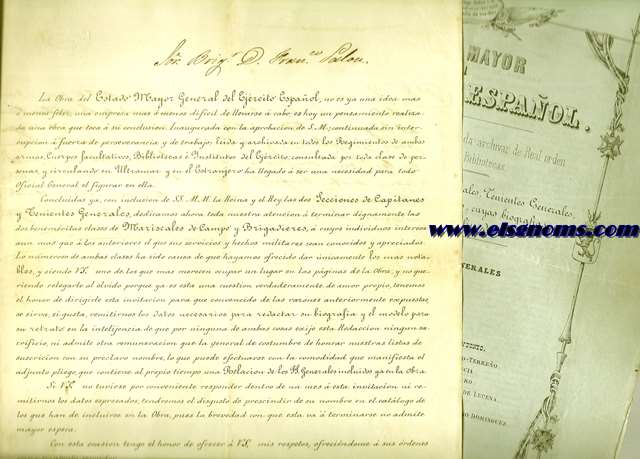 Sõr. Brigr. D. Franco.
La Obra del Estado Mayor General del Ejército Español, no es ya una idea mas
ó menos feliz, una empresa mas ó menos difícil de llevarse á cabo: es hoy un pensamiento realiza
do, una obra que toca á su conclusion. Inaugurada con la aprobacion de S.M.; continuada sin inter-
rupcion á fuerza de perseverancia y de trabajo; leida y archivada en todos los Regimientos de ambas
armas, Cuerpos facultativos, Bibliotecas é Institutos del Ejército; consultada por toda clase de per
sonas y circulando en Ultramar y en el Estranjero ha llegado á ser una necesidad para todo
Oficial General el figurar en ella.
Concluidas ya, con inclusion de SS. M.M. la Reina y el Rey las dos Secciones de Capitanes
y Tenientes Generales, dedicamos ahora toda nuestra atencion á terminar dignamente las
dos beneméritas clases de Mariscales de Campo y Brigadieres, á cuyos individuos interesa
aun mas que á los anteriores el que sus servicios y hechos militares sean conocidos y apreciados.
Lo numeroso de ambas clases ha sido causa de que hayamos ofrecido dar únicamente los mas nota-
bles, y siendo V.S. uno de los que mas merecen ocupar un lugar en las páginas de la Obra, y no que
riendo relegarle al olvido porque ya es esta una cuestion verdaderamente de amor propio, tenemos
el honor de dirigirle esta invitacion para que convencido de las razones anteriormente expuestas,
se sirva, si gusta, remitirnos los datos necesarios para redactar su biografía y el modelo para
su retrato en la inteligencia de que por ninguna de ambas cosas exije esta Redaccion ningun sa-
crificio, ni admite otra remuneracion que la general de costumbre de honrar nuestras listas de
suscricion con su preclaro nombre, lo que puede efectuarse con la comodidad que manifiesta el
adjunto pliego, que contiene al propio tiempo una Relacion de los SS. Generales incluidos ya en la Obra.
Si V.S. no tuviese por conveniente responder dentro de un mes á esta invitacion ni re-
mitirnos los datos espresados, tendremos el disgusto de prescindir de su nombre en el catálogo de
los que han de incluirse en la Obra, pues la brevedad con que esta va á terminarse no admite
mayor espera.
Con esta ocasion tengo el honor de ofrecer á V.S. mis respetos, ofreciéndome á sus órdenes
MAYOR
ESPAÑOL.
archivar de Real orden
Bibliotecas
ales, Tenientes Generales
cuyas biografias
www.elsgnoms.com
NERALES
DE LUCENA.
DOMINGUEZ